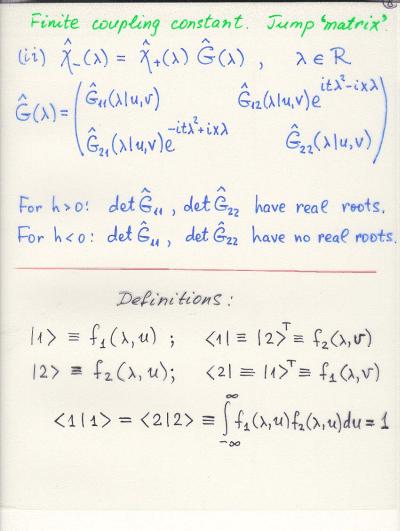 Finite coupling constant. Jump "matrix".
(ii) χ̂₋(λ) = χ̂₊(λ) Ĝ(λ) , λ ∈ ℝ
Ĝ(λ) = ( Ĝ₁₁(λ|u,v) Ĝ₁₂(λ|u,v)e^{itλ²-ixλ}
Ĝ₂₁(λ|u,v)e^{-itλ²+ixλ} Ĝ₂₂(λ|u,v) )
For h>0: det Ĝ₁₁ , det Ĝ₂₂ have real roots.
For h<0: det Ĝ₁₁ , det Ĝ₂₂ have no real roots.
Definitions:
|1> ≡ f₁(λ,u) ; <1| ≡ |2>ᵀ ≡ f₂(λ,v)
|2> ≡ f₂(λ,u); <2| ≡ |1>ᵀ ≡ f₁(λ,v)
<1|1> = <2|2> ≡ ∫_{-∞}^{∞} f₁(λ,u)f₂(λ,u)du = 1